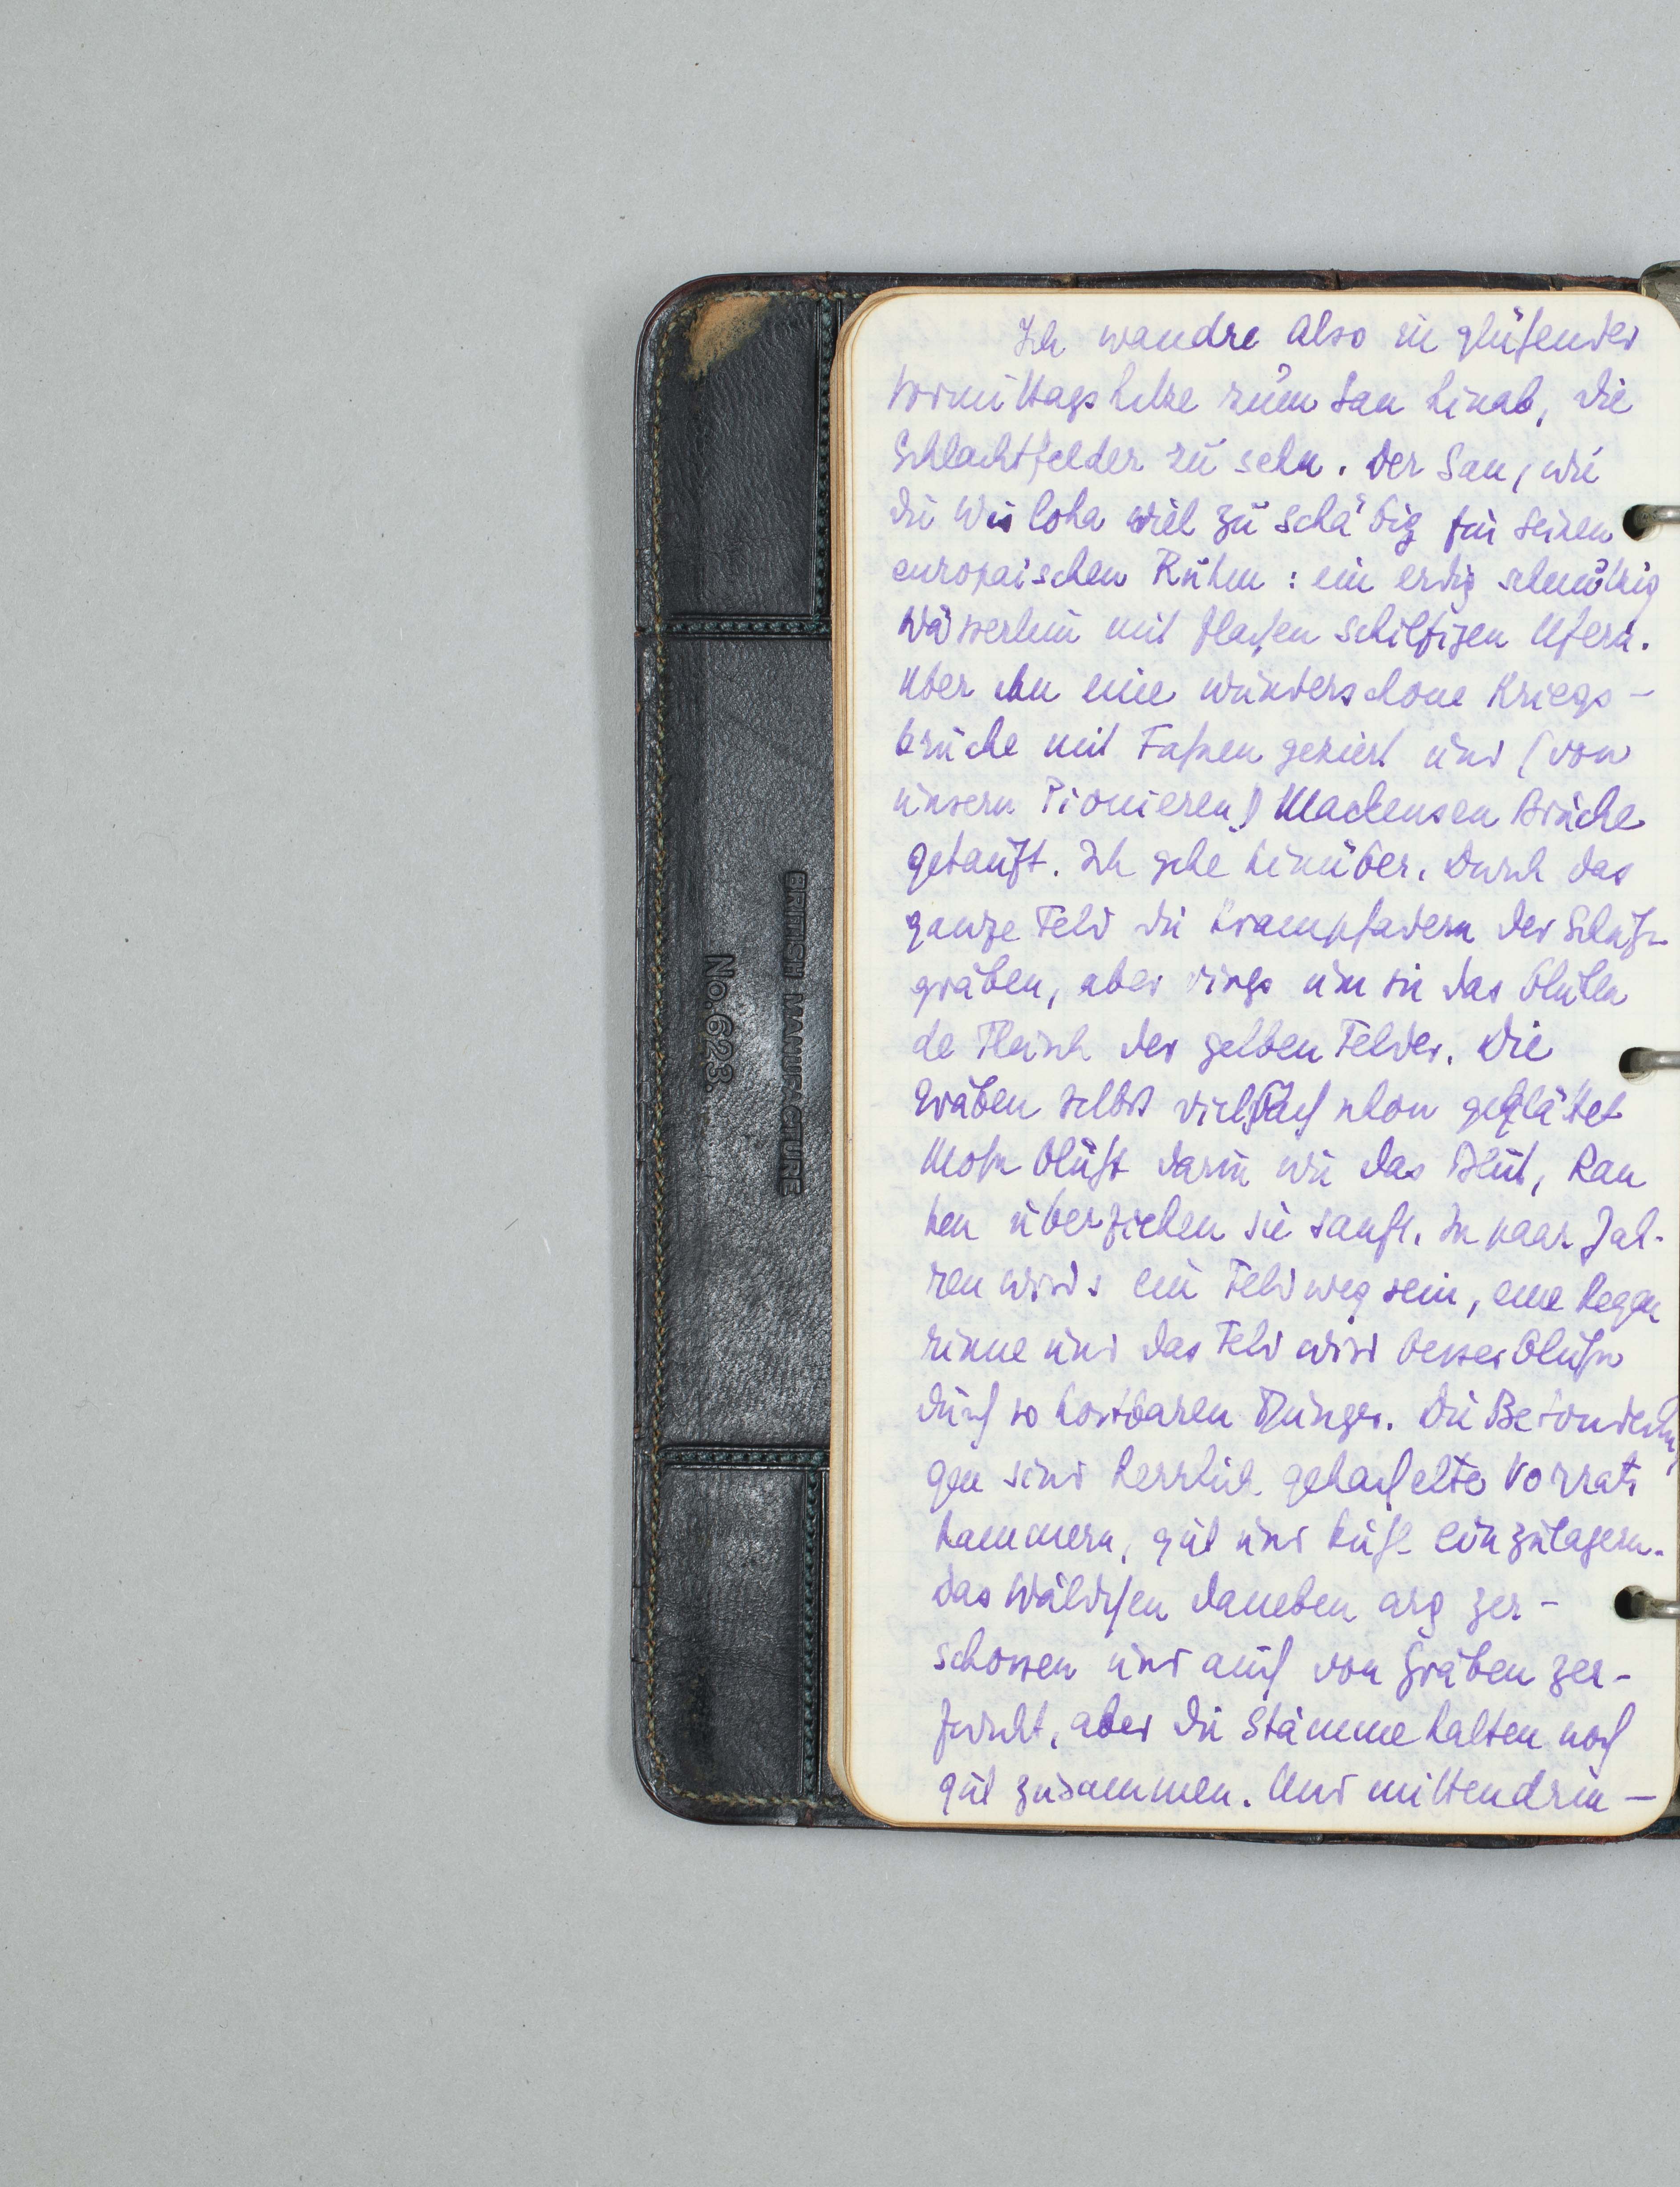 BRITISH MANUFACTURE
No. 623.
Ich wandre also in glühender
Vormittagshitze zum San hinab, die
Schlachtfelder zu sehn. Der San, wie
die Wisloka viel zu schäbig für seinen
europaischen Ruhm: ein erdig schmutzig
Wässerlein mit flachen schilfigen Ufern.
Uber ihn eine wunderschone Kriegs-
brücke mit Fahnen geziert und (von
unsern Pionieren!) Mackensen Brücke
getauft. Ich gehe hinüber. Durch das
ganze Feld die Krampfadern der Schütz-
gräben, aber rings um sie das blühen
de Fleisch der gelben Felder. Die
Gräben selbst vielfach schon geglättet
Mohn blüht darin wie das Blut, Ran
ken überziehen sie sanft. In paar Jah-
ren wirds ein Feldweg sein, eine Regen
rinne und das Feld wird besser blühn
durch so kostbaren Dünger. Die Befonderun
gen sind herrlich gekachelte Vorrats
kammern, gut und kühl einzulagern.
Das Wäldchen daneben arg zer-
schossen und auch von Gräben zer-
furcht, aber die Stämme halten noch
gut zusammen. Und mittendrin –